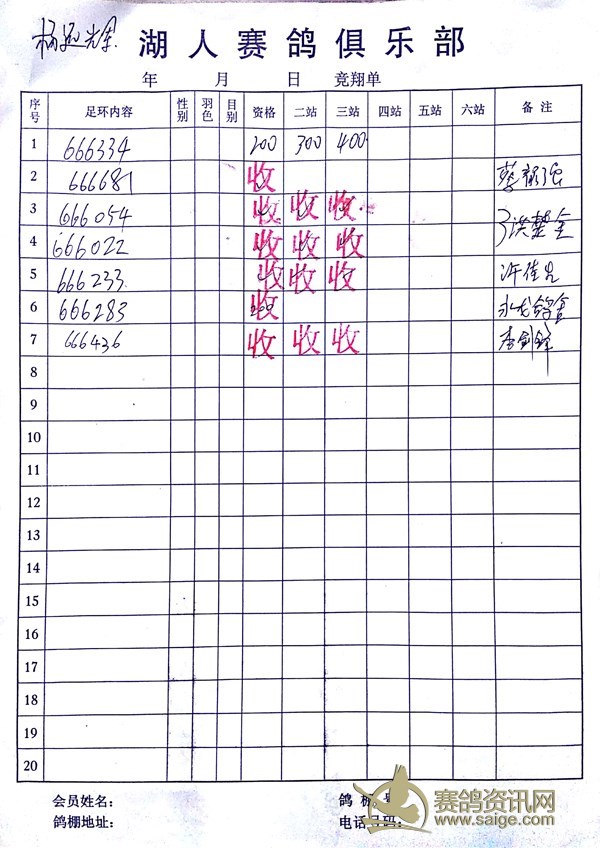 湖人赛鸽俱乐部
年 月 日 竞翔单
序号 足环内容 性别 羽色 目别 资格 二站 三站 四站 五站 六站 备注
1 666334 200 300 400
2 666681 收
3 666054 收 收 收
4 666022 收 收 收
5 666233 收 收 收 许佳
6 666283 收
7 666436 收 收 收 李剑锋
8
9
10
11
12
13
14
15
16
17
18
19
20
会员姓名: 鸽棚号
鸽棚地址: 电话号码:
赛鸽资讯网
www.saige.com